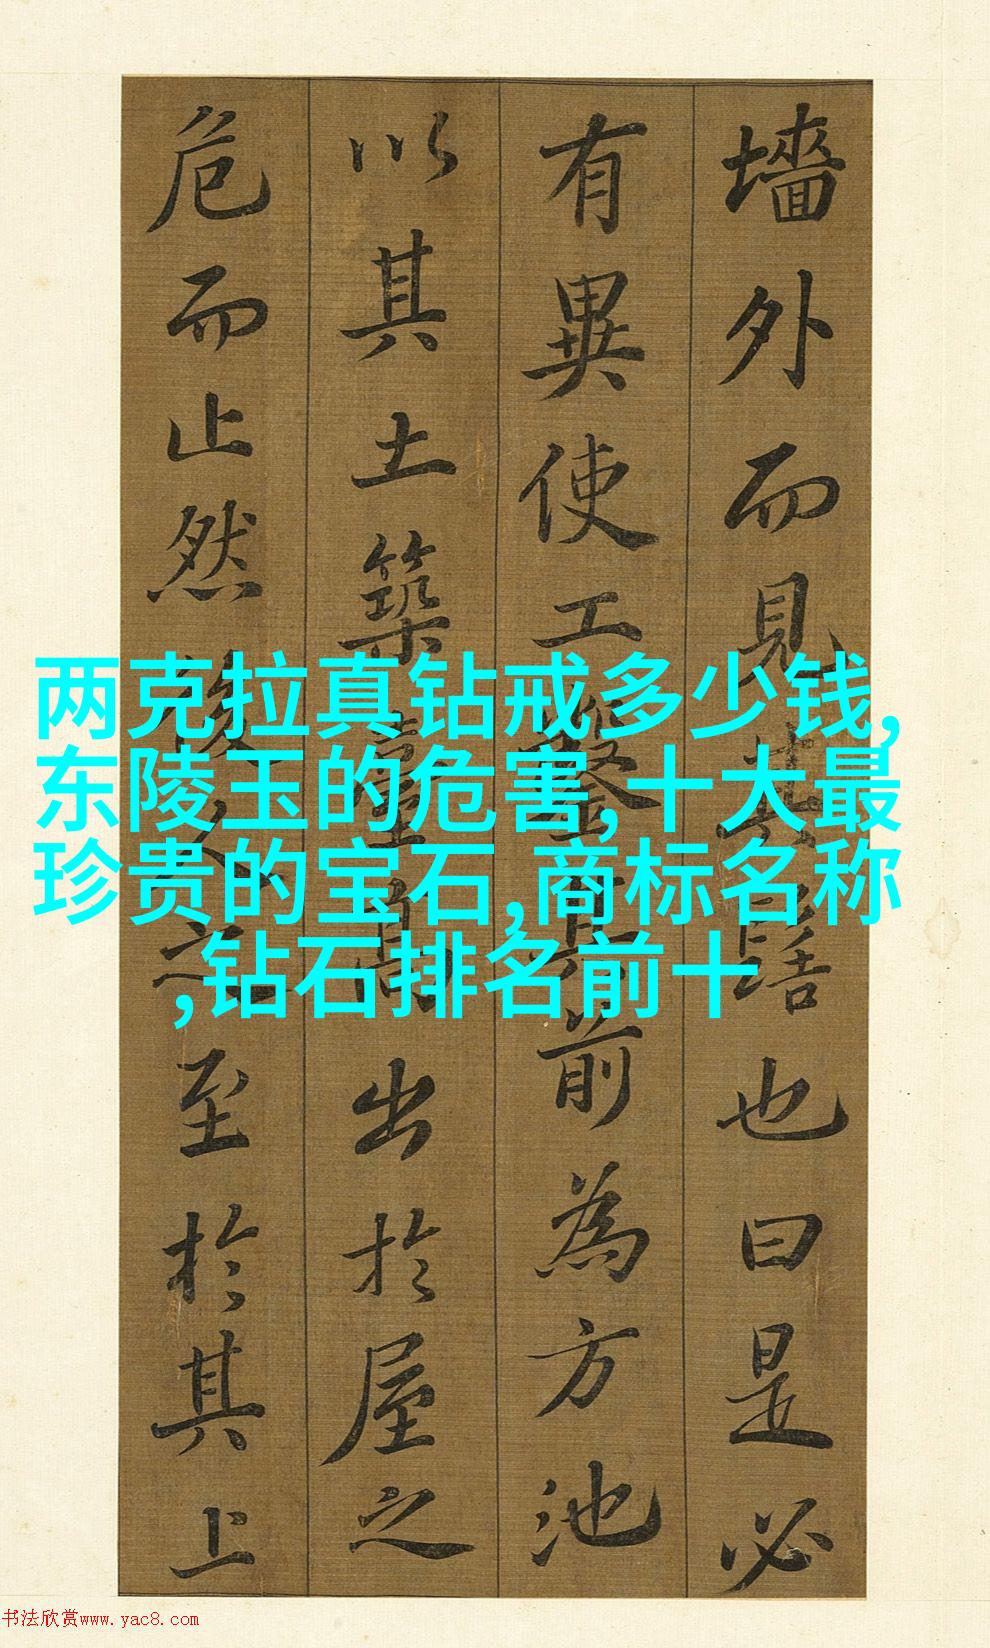 墻外而見其髻也曰是必
有異使工鑿其前為方池
以其土築臺高出於屋之
危而止然後人之至於其上
两克拉真钻戒多少钱,
东陵玉的危害,十大最
珍贵的宝石,商标名称
,钻石排名前十
书法欣赏www.yac8.com